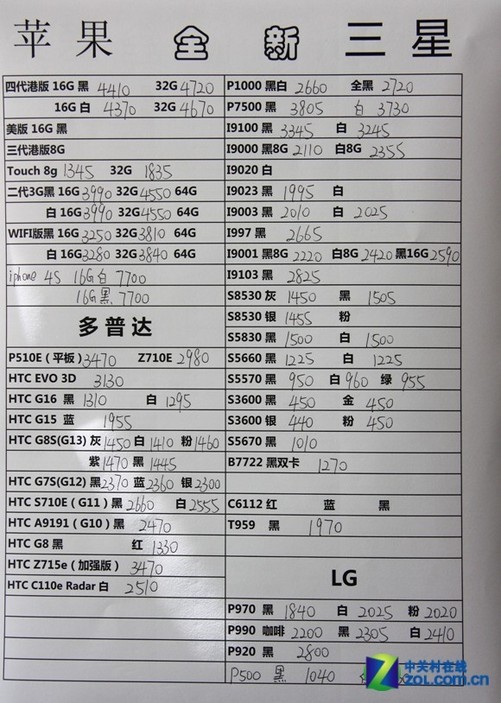 苹果 全新 三星
四代港版 16G 黑 4410 32G 4720
16G 白 4370 32G 4670
美版 16G 黑
三代港版8G
Touch 8g 1345 32G 1835
二代3G黑 16G 3990 32G 4550 64G
白 16G 3990 32G 4550 64G
WIFI版黑 16G 3250 32G 3810 64G
白 16G 3280 32G 3840 64G
iphone 4S 16G 白 7700
16G 黑 7700
多普达
P510E（平板）3470 Z710E 2980
HTC EVO 3D 3130
HTC G16 黑 1310 白 1295
HTC G15 蓝 1955
HTC G8S(G13) 灰 1450 白 1410 粉 1460
紫 1470 黑 1445
HTC G7S(G12) 黑 2370 蓝 2360 银 2300
HTC S710E（G11）黑 2660 白 2555
HTC A9191（G10）黑 2470
HTC G8 黑 红 1330
HTC Z715e（加强版） 3470
HTC C110e Radar 白 2510
P1000 黑白 2660 全黑 2720
P7500 黑 3805 白 3730
I9100 黑 3345 白 3245
I9000 黑8G 2110 白8G 2355
I9020 白
I9023 黑 1995 白
I9003 黑 2010 白 2025
I997 黑 2665
I9001 黑8G 2220 白8G 2420 黑16G 2590
I9103 黑 2825
S8530 灰 1450 黑 1505
S8530 银 1455 粉
S5830 黑 1500 白 1500
S5660 黑 1225 白 1225
S5570 黑 950 白 960 绿 955
S3600 黑 450 金 450
S3600 银 440 粉 450
S5670 黑 1010
B7722 黑双卡 1270
C6112 红 蓝 黑
T959 黑 1970
LG
P970 黑 1840 白 2025 粉 2020
P990 咖啡 2200 黑 2305 白 2410
P920 黑 2800
P500 黑 1040
中关村在线
zol.com.cn